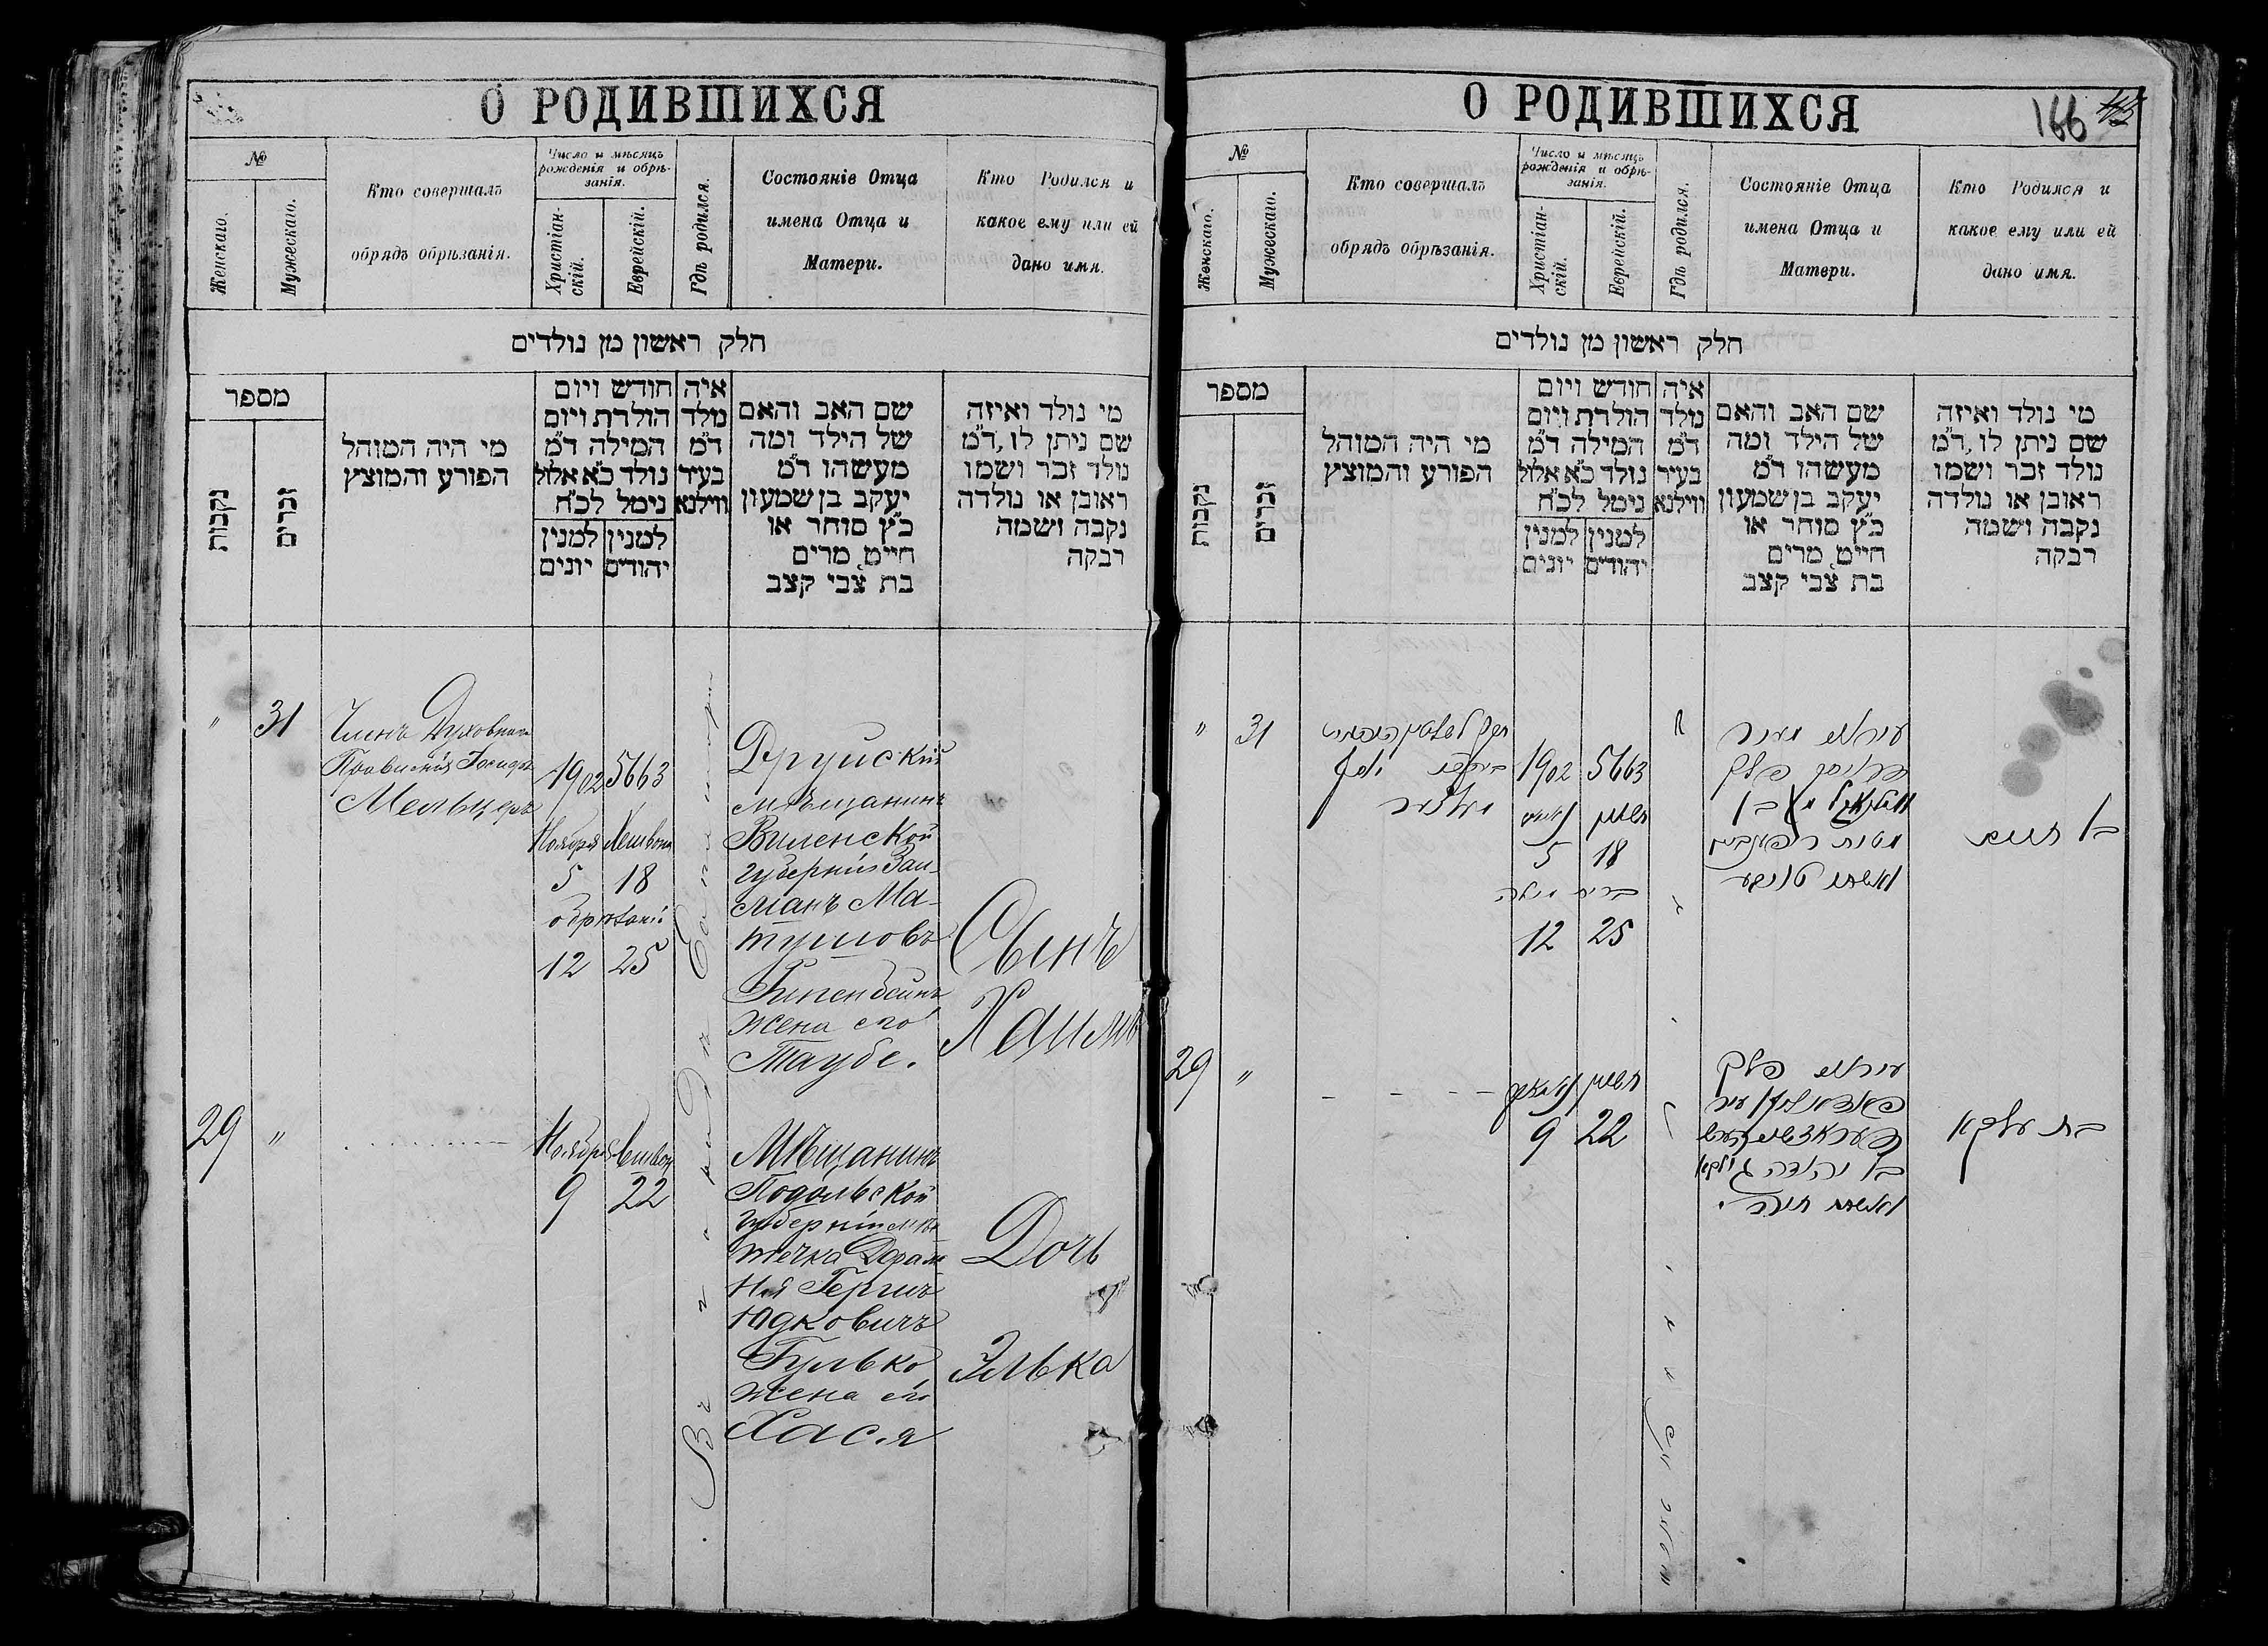 О РОДИВШИХСЯ
№
Женскаго.
Мужескаго.
Кто совершалъ
обрядъ обрѣзанія.
Число и мѣсяцъ
рожденія и обрѣ-
занія.
Христіан-
скій.
Еврейскій.
Гдѣ родился.
Состояніе Отца
имена Отца и
Матери.
Кто Родился и
какое ему или ей
дано имя.
חלק ראשון מן נולדים
מספר
נקבות
זכרים
מי היה המוהל
הפורע והמוצץ
חודש ויום
הולדת ויום
המילה ד״מ
נולד כ״א אלול
נימל לכ״ח
למנין
יהודים
למנין
יונים
איה
נולד
ד״מ
בעיר
ווילנא
שם האב והאם
של הילד ומה
מעשהו ד״מ
יעקב בן שמעון
כ״ץ סוחר או
חייט, מרים
בת צבי קצב
מי נולד ואיזה
שם ניתן לו, ד״מ
נולד זכר ושמו
ראובן או נולדה
נקבה ושמה
רבקה
" 31
Членъ Духовнаго
Правленія
Мельцеръ
1902 5663
Ноября Хешвона
5 18
обрѣзаніе
12 25
Друйскій
мѣщанинъ
Виленской
губерніи Зал-
манъ Ма-
тушовъ
жена его
Таубе.
Сынъ
Хаимъ
29 "
Ноября
9 22
Мѣщанинъ
Подольской
губерніи мѣс
течка Дераж
ня Гершъ
Юдковичъ
Гулько
жена его
Хася
Дочь
Элька
О РОДИВШИХСЯ
166
№
Женскаго.
Мужескаго.
Кто совершалъ
обрядъ обрѣзанія.
Число и мѣсяцъ
рожденія и обрѣ-
занія.
Христіан-
скій.
Еврейскій.
Гдѣ родился.
Состояніе Отца
имена Отца и
Матери.
Кто Родился и
какое ему или ей
дано имя.
חלק ראשון מן נולדים
מספר
נקבות
זכרים
מי היה המוהל
הפורע והמוצץ
חודש ויום
הולדת ויום
המילה ד״מ
נולד כ״א אלול
נימל לכ״ח
למנין
יהודים
למנין
יונים
איה
נולד
ד״מ
בעיר
ווילנא
שם האב והאם
של הילד ומה
מעשהו ד״מ
יעקב בן שמעון
כ״ץ סוחר או
חייט, מרים
בת צבי קצב
מי נולד ואיזה
שם ניתן לו, ד״מ
נולד זכר ושמו
ראובן או נולדה
נקבה ושמה
רבקה
" 31
יוסף
מעלצער
1902 5663
חשון
5 18
ברית מילה
12 25
עיראני מעיר
דרויסק פלך
ואשתו טויבע
בן חיים
29 "
חשון
9 22
עיראני פלך
בן יהודה גולקא
ואשתו חיה
בת עלקא